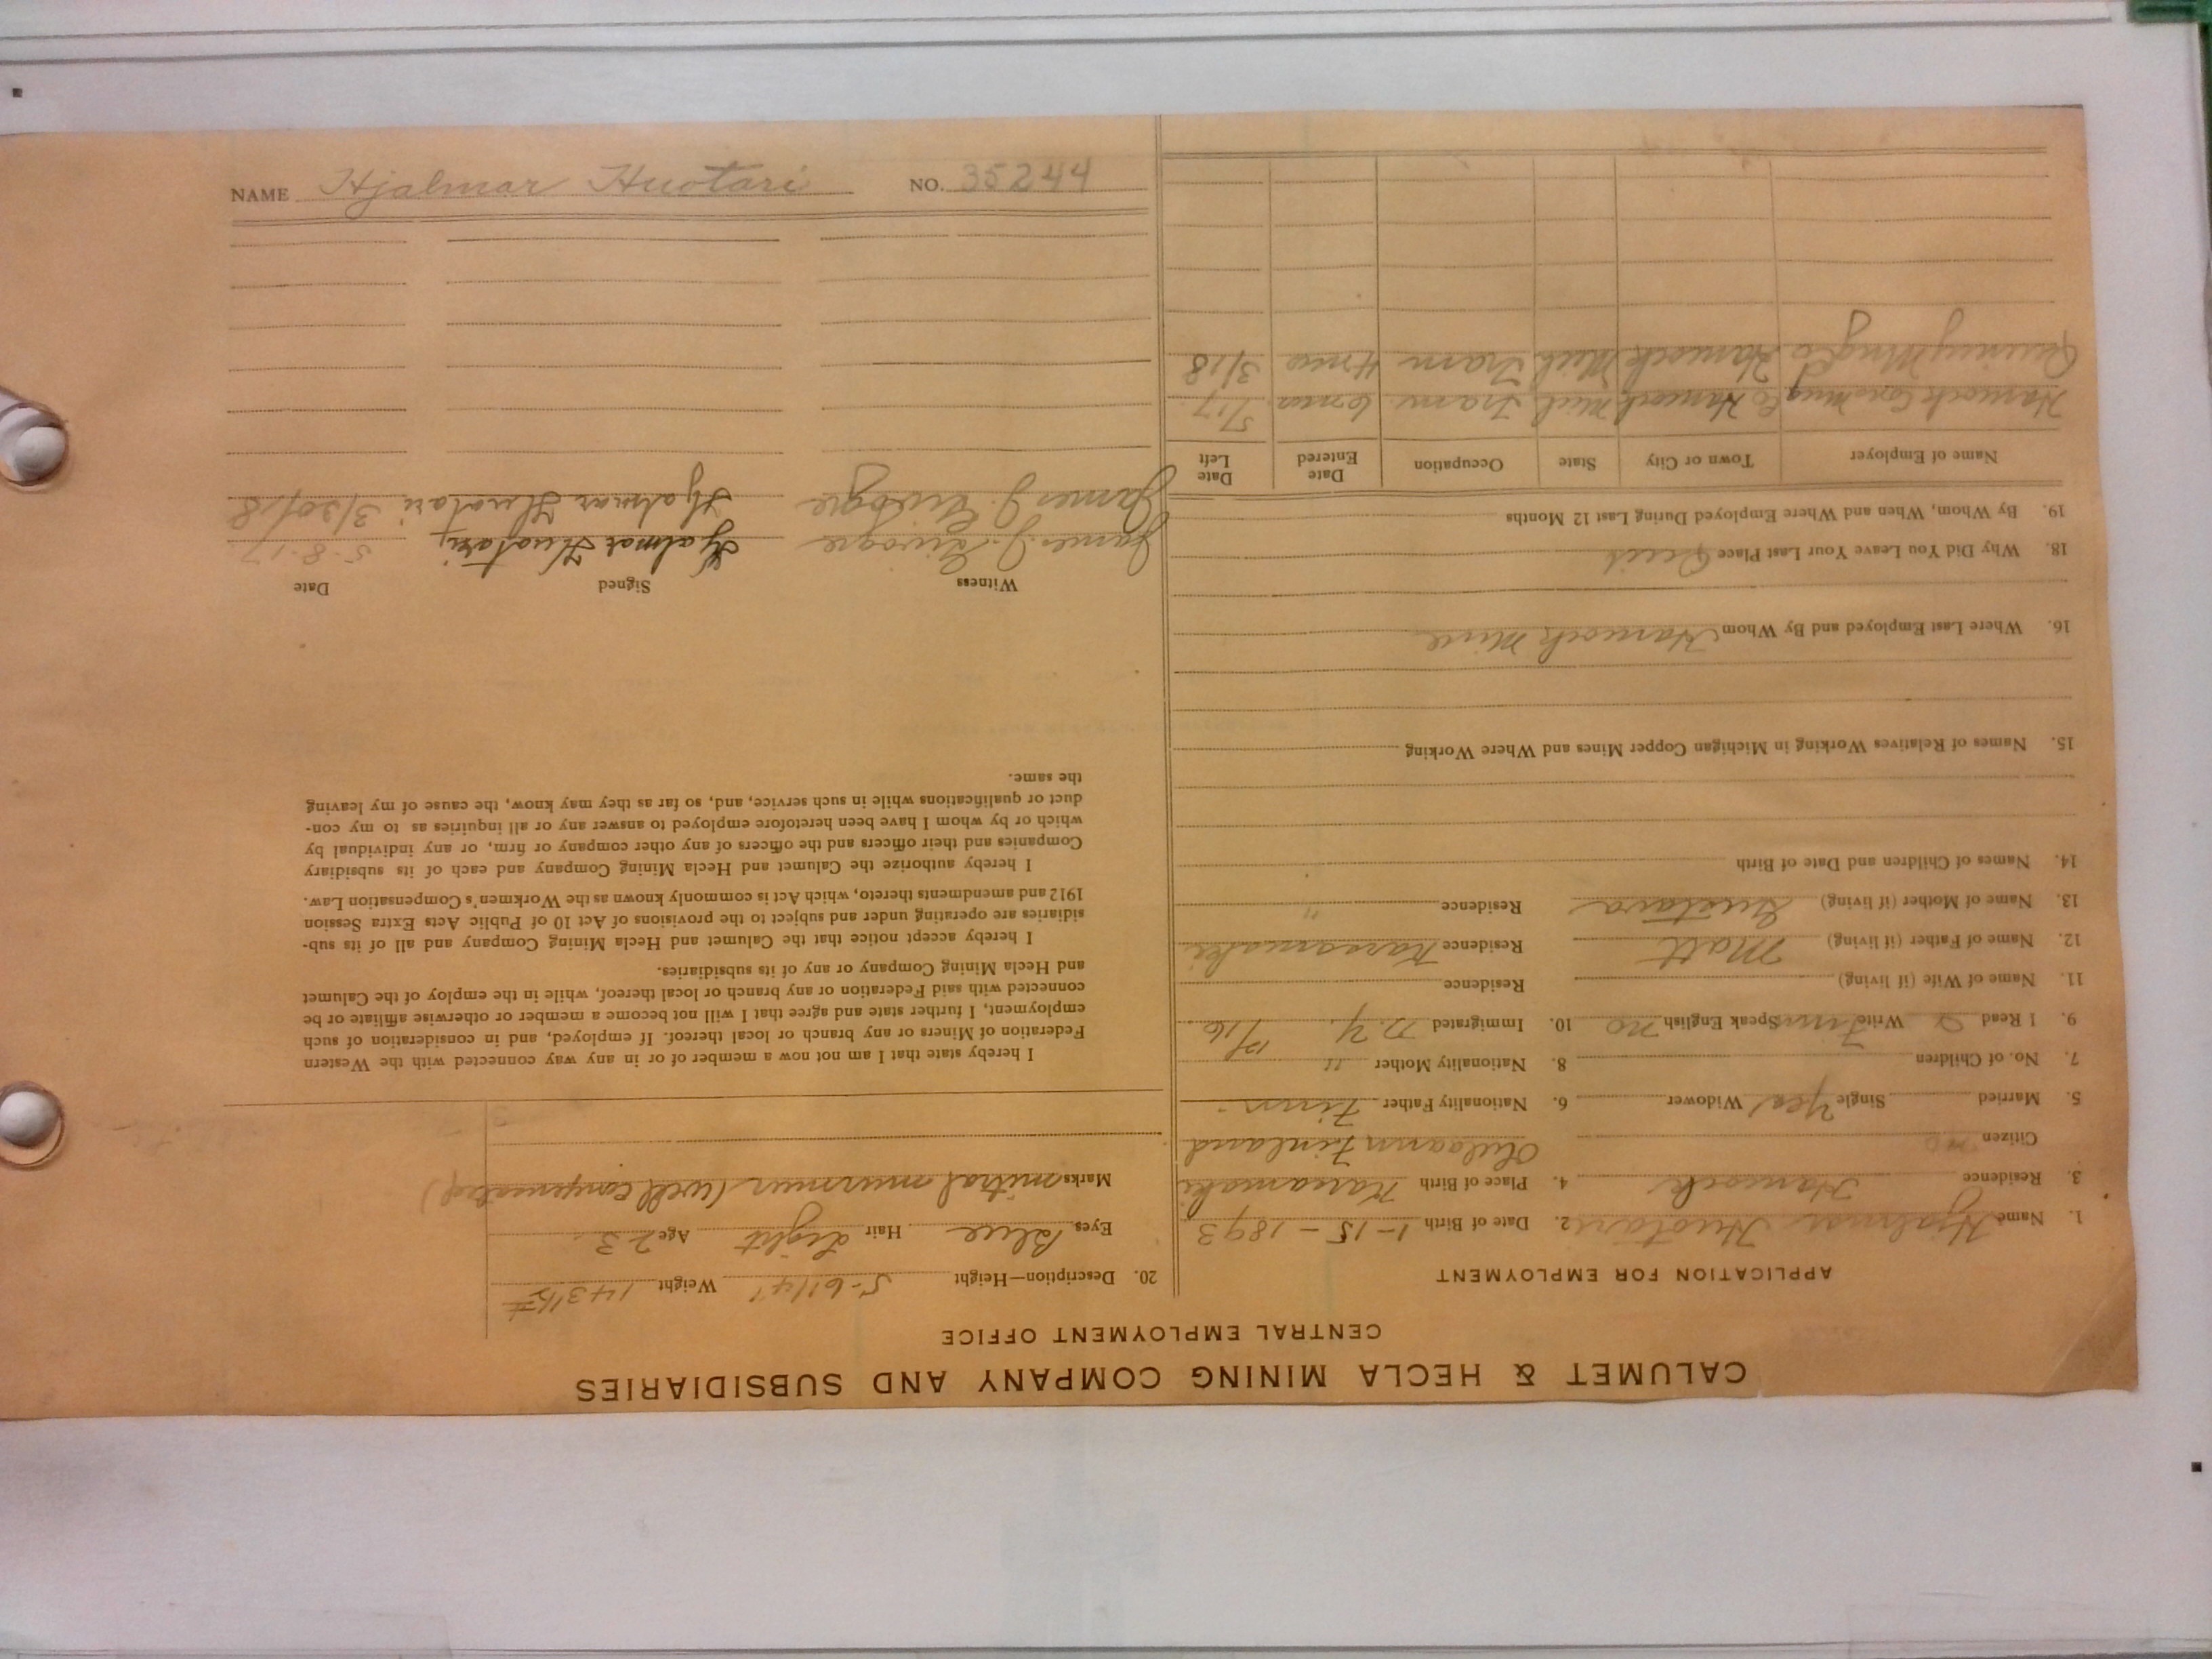 CALUMET & HECLA MINING COMPANY AND SUBSIDIARIES
CENTRAL EMPLOYMENT OFFICE
APPLICATION FOR EMPLOYMENT
1. Name Hjalmar Huotari 2. Date of Birth 1-15-1893
3. Residence Hancock 4. Place of Birth
Citizen no Finland
5. Married Single Yes Widower 6. Nationality Father Finn
7. No. of Children 8. Nationality Mother "
9. I Read & Write Finn Speak English no 10. Immigrated N.Y. 12/16
11. Name of Wife (if living) Residence
12. Name of Father (if living) Matt Residence
13. Name of Mother (if living) Gustava Residence "
14. Names of Children and Date of Birth
15. Names of Relatives Working in Michigan Copper Mines and Where Working
16. Where Last Employed and By Whom Hancock Mine
18. Why Did You Leave Your Last Place Quit
19. By Whom, When and Where Employed During Last 12 Months
Name of Employer Town or City State Occupation Date Entered Date Left
Hancock Cons Mng Co Hancock Mich Tram 6 mos. 5/17
Quincy Mng Co Hancock Mich Tram 4 mos 3/18
20. Description—Height 5-6 1/4" Weight 143 1/2 #
Eyes Blue Hair Light Age 23
Marks mitral murmur (well compensated)
I hereby state that I am not now a member of or in any way connected with the Western
Federation of Miners or any branch or local thereof. If employed, and in consideration of such
employment, I further state and agree that I will not become a member or otherwise affiliate or be
connected with said Federation or any branch or local thereof, while in the employ of the Calumet
and Hecla Mining Company or any of its subsidiaries.
I hereby accept notice that the Calumet and Hecla Mining Company and all of its sub-
sidiaries are operating under and subject to the provisions of Act 10 of Public Acts Extra Session
1912 and amendments thereto, which Act is commonly known as the Workmen's Compensation Law.
I hereby authorize the Calumet and Hecla Mining Company and each of its subsidiary
Companies and their officers and the officers of any other company or firm, or any individual by
which or by whom I have been heretofore employed to answer any or all inquiries as to my con-
duct or qualifications while in such service, and, so far as they may know, the cause of my leaving
the same.
Witness Signed Date
James J. Hjalmar Huotari 5-8-17
James J. Hjalmar Huotari 3/30/18
NAME Hjalmar Huotari NO. 35244